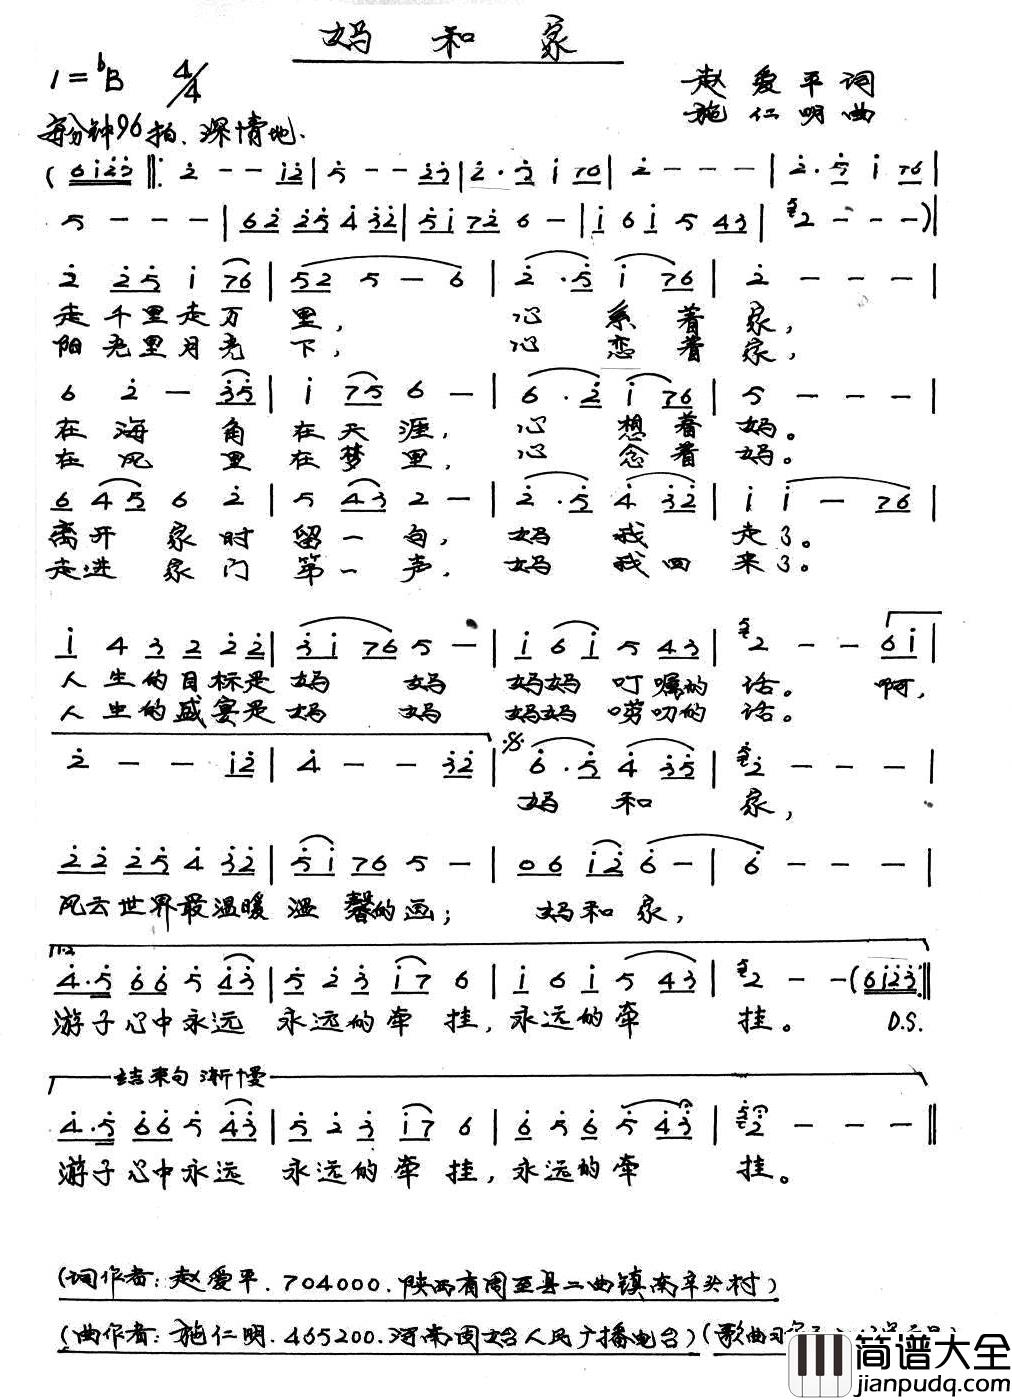 妈和家
1=♭B 4/4
赵爱平词
施仁明曲
每分钟96拍、深情地.
走千里走万里, 心系着家,
阳光里月光下, 心恋着家,
在海角在天涯, 心想着妈。
在风里在梦里, 心念着妈。
离开家时留一句, 妈我走了。
走进家门第一声, 妈我回来了。
人生的目标是妈妈妈妈叮嘱的话。啊,
人生的盛宴是妈妈妈妈唠叨的话。
妈和家,
风云世界最温暖温馨的画; 妈和家,
1.2
游子心中永远永远的牵挂,永远的牵挂。 D.S.
结束句渐慢
游子心中永远永远的牵挂,永远的牵挂。
(词作者:赵爱平.704000.陕西省周至县二曲镇南辛头村)
(曲作者:施仁明.465200.河南固始人民广播电台)(歌曲
简谱大全
jianpudq.com